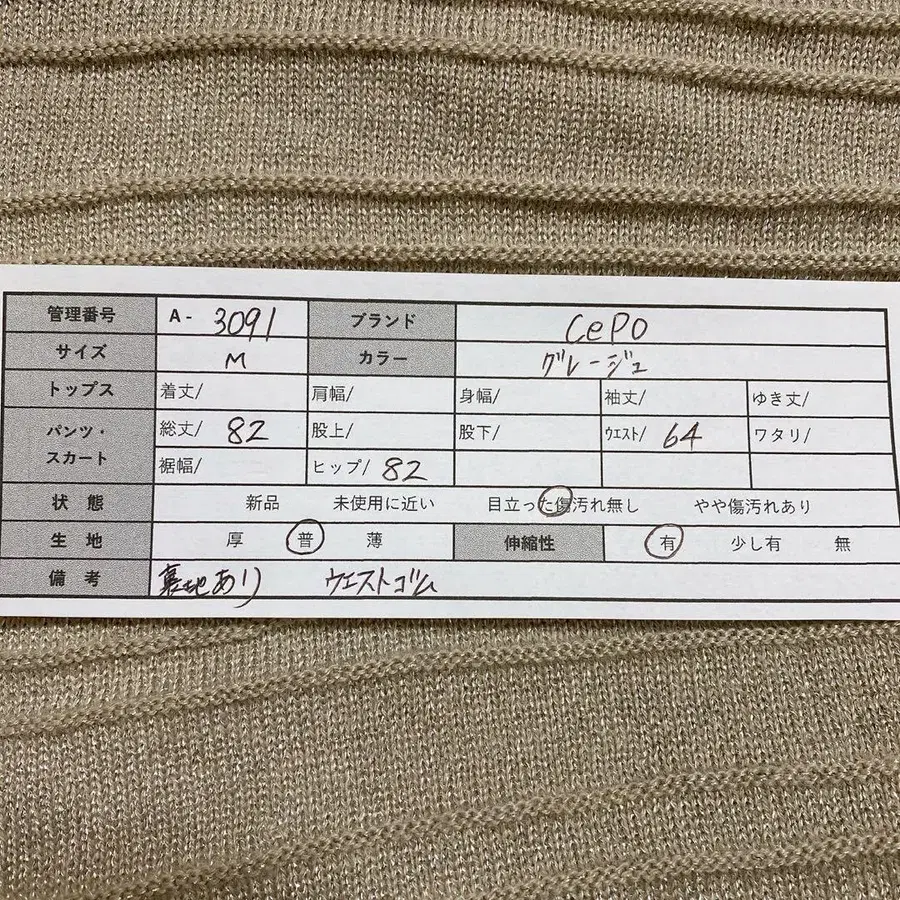 管理番号 A - 3091 ブランド CePO
サイズ M カラー グレージュ
トップス 着丈/ 肩幅/ 身幅/ 袖丈/ ゆき丈/
パンツ・スカート 総丈/ 82 股上/ 股下/ ウエスト/ 64 ワタリ/
裾幅/ ヒップ/ 82
状 態 新品 未使用に近い 目立った傷汚れ無し やや傷汚れあり
生 地 厚 普 薄 伸縮性 有 少し有 無
備 考 裏地あり ウエストゴム